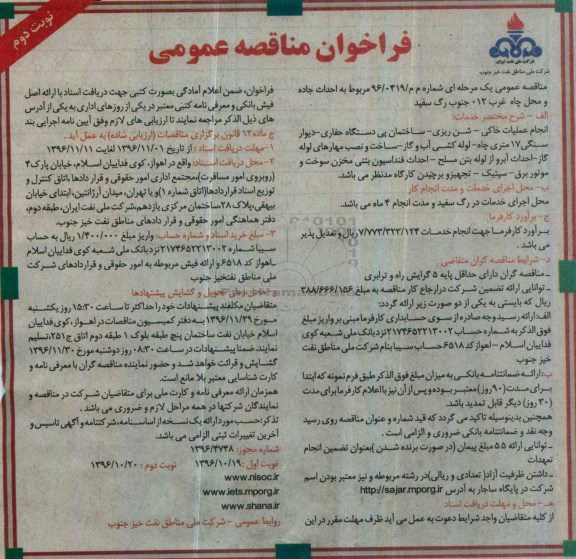 نوبت دوم
فراخوان مناقصه عمومی
شرکت ملی نفت ایران
شرکت ملی مناطق نفت خیز جنوب
مناقصه عمومی یک مرحله ای شماره م م/۹۶/۰۴۱۹ مربوط به احداث جاده
و محل چاه غرب ۰۱۲ جنوب رگ سفید
الف – شرح مختصر خدمات:
انجام عملیات خاکی – شن ریزی– ساختمان پی دستگاه حفاری–دیوار
سنگی ۱۷ متری چاه– لوله کشی آب و گاز–ساخت و نصب مهارهای لوله
گاز–احداث آبرو از لوله بتن مسلح – احداث فنداسیون بتنی مخزن سوخت و
موتور برق – سپتیک – تجهیز و برچیدن کارگاه مدنظر می باشد.
ب–محل اجرای خدمات و مدت انجام کار
محل اجرای خدمات در رگ سفید و مدت انجام ۴ ماه می باشد.
ج– برآورد کارفرما
برآورد کارفرما جهت انجام خدمات ۷/۷۷۳/۳۲۳/۱۲۴ ریال و تعدیل پذیر
می باشد.
د– شرایط مناقصه گران متقاضی
ـ مناقصه گران دارای حداقل پایه ۵ گرایش راه و ترابری
ـ توانایی ارائه تضمین شرکت در ارجاع کار مناقصه به مبلغ ۳۸۸/۶۶۶/۱۵۶
ریال که بایستی به یکی از دو صورت زیر ارائه گردد:
الف:ارائه رسید وجه صادره از سوی حسابداری کارفرما مبنی بر واریز مبلغ
فوق الذکر به شماره حساب ۲۱۷۴۶۵۲۲۱۳۰۰۲ نزد بانک ملی شعبه کوی
فداییان اسلام – اهواز کد ۶۵۱۸ حساب سیبا بنام شرکت ملی مناطق نفت
خیز جنوب
ب:ارائه ضمانتنامه بانکی به میزان مبلغ فوق الذکر طبق فرم نمونه که ابتدا
برای مدت (۹۰ روز)معتبر بوده و پس از آن نیز با اعلام کارفرما برای مدت
(۳۰ روز) دیگر قابل تمدید باشد.
همچنین بدینوسیله تاکید می گردد که قید شماره و عنوان مناقصه روی رسید
وجه نقد و ضمانتنامه بانکی ضروری و الزامی است.
ـ توانایی ارائه ۵۵ مبلغ پیمان (در صورت برنده شدن )بعنوان تضمین انجام
تعهدات
ـ داشتن ظرفیت آزاد( تعدادی و ریالی)در رشته مربوطه و نیز معتبر بودن اسم
شرکت در پایگاه ساجار به آدرس http://sajar.mporg.ir
هـ – محل و مهلت دریافت اسناد
از کلیه متقاضیان واجد شرایط دعوت به عمل می آید ظرف مهلت مقرر در این
فراخوان، ضمن اعلام آمادگی بصورت کتبی جهت دریافت اسناد با ارائه اصل
فیش بانکی و معرفی نامه کتبی معتبر در یکی از روزهای اداری به یکی از آدرس
های ذیل الذکر مراجعه نمایند تا ارزیابی های لازم وفق آیین نامه اجرایی بند
ج ماده ۱۲ قانون برگزاری مناقصات (ارزیابی ساده) به عمل آید .
۱–مهلت دریافت اسناد : از تاریخ ۱۳۹۶/۱۱/۰۱ لغایت ۱۳۹۶/۱۱/۱۱
۲– محل دریافت اسناد: واقع در اهواز، کوی فداییان اسلام، خیابان پارک ۴
(روبروی امور مسافرت)،مجتمع اداری امور حقوقی و قرار دادها،اتاق کنترل و
توزیع اسناد قراردادها(اتاق شماره ۱) و یا تهران، میدان آرژانتین، ابتدای خیابان
بیهقی، پلاک ۲۸ساختمان مرکزی یازدهم، شرکت ملی نفت ایران، طبقه دوم،
دفتر هماهنگی امور حقوقی و قرار دادهای مناطق نفت خیز جنوب.
۳– مبلغ خرید اسناد و شماره حساب: واریز مبلغ ۱/۴۰۰/۰۰۰ ریال به حساب
سیبا شماره ۲۱۷۴۶۵۲۲۱۳۰۰۲ نزد بانک ملی شعبه کوی فداییان اسلام
ـاهواز کد ۶۵۱۸ و ارائه فیش مربوطه به امور حقوقی و قراردادهای شرکت
ملی مناطق نفتخیز جنوب
و – محل زمان تحویل و گشایش پیشنهادها
متقاضیان مکلفند پیشنهادات خود را حداکثر تا ساعت ۱۵:۳۰ روز یکشنبه
مورخ ۱۳۹۶/۱۱/۲۹ به دفتر کمیسیون مناقصات در اهواز، کوی فداییان
اسلام خیابان نفت ساختمان پنج طبقه بلوک ۱ طبقه دوم اتاق ج ۲۵۱، تسلیم
نمایند. ضمنا پیشنهادات در ساعت ۰۸:۳۰ روز دوشنبه مورخ ۱۳۹۶/۱۱/۳۰
گشایش و قرائت خواهد شد و حضور نماینده مناقصه گران با معرفی نامه و
کارت شناسایی معتبر بلا مانع است.
همزمان ارائه معرفی نامه و کارت ملی برای متقاضیان شرکت در مناقصه و
نمایندگان شرکتها در همه مراحل لازم و ضروری می باشد .
تذکر: حسب مورد ارائه یک نسخه از اساسنامه، شرکتنامه و آگهی تاسیس و
آخرین تغییرات ثبتی الزامی می باشد.
شماره مجوز: ۱۳۹۶/۴۷۳۸
نوبت اول :۱۳۹۶/۱۰/۱۹ نوبت دوم : ۱۳۹۶/۱۰/۲۰
www.nisoc.ir
www.iets.mporg.ir
www.shana.ir
روابط عمومی – شرکت ملی مناطق نفت خیز جنوب